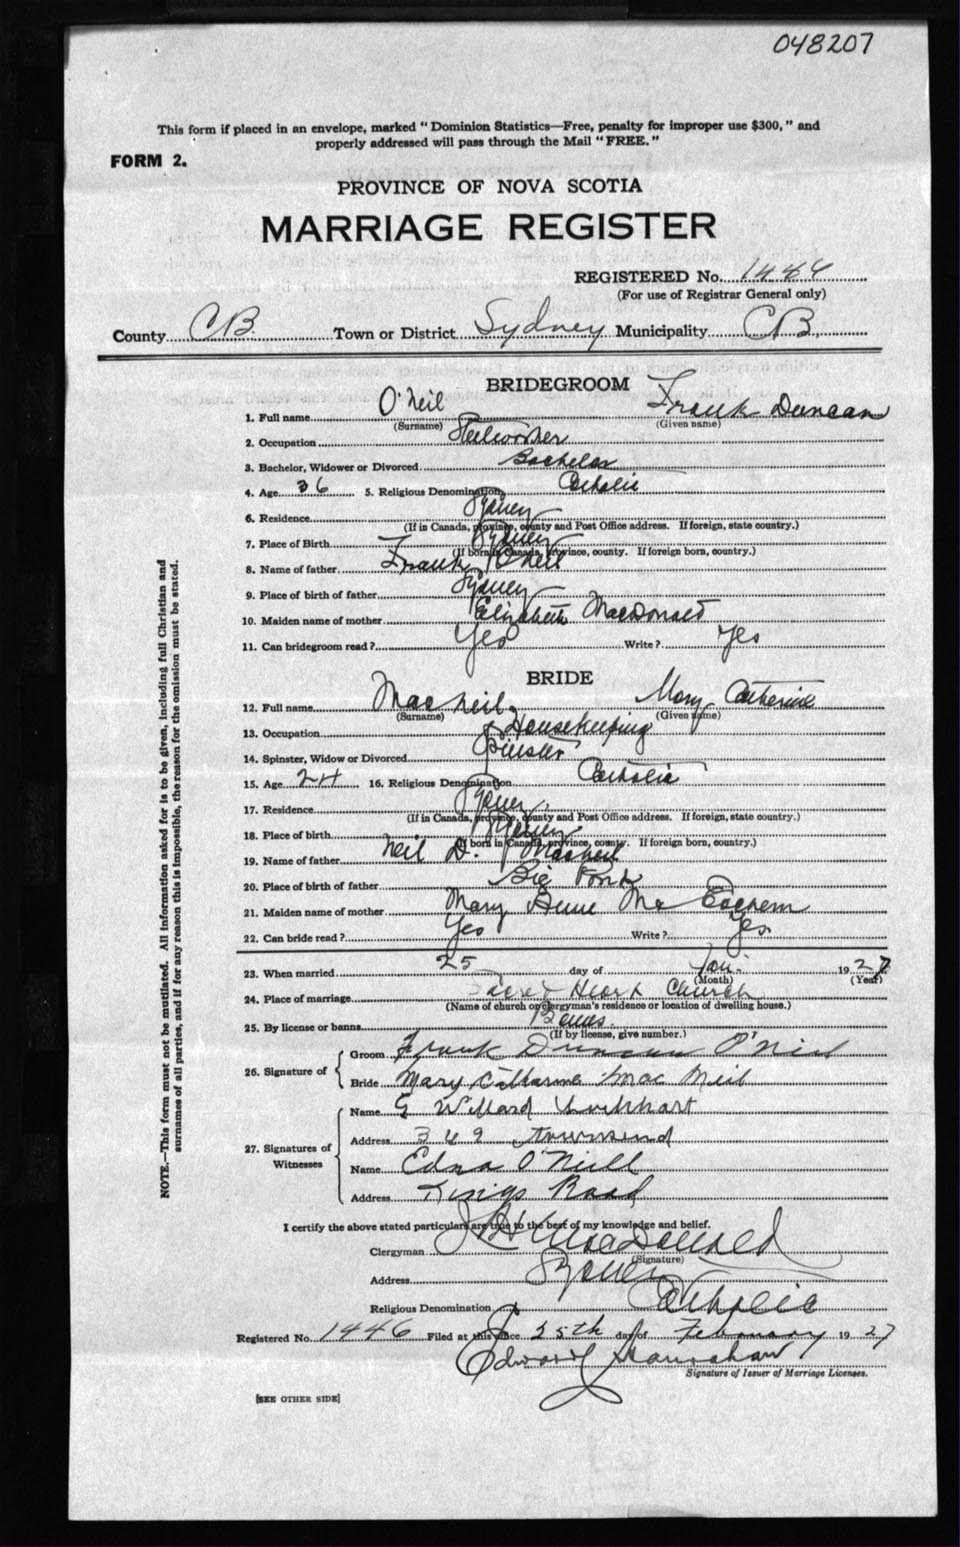 048207
This form if placed in an envelope, marked "Dominion Statistics—Free, penalty for improper use $300," and
properly addressed will pass through the Mail "FREE."
FORM 2.
PROVINCE OF NOVA SCOTIA
MARRIAGE REGISTER
REGISTERED No. 1484
(For use of Registrar General only)
County C.B. Town or District Sydney Municipality C.B.,
BRIDEGROOM
1. Full name O'Neil Frank Duncan
(Surname) (Given name)
2. Occupation Steelworker
3. Bachelor, Widower or Divorced Bachelor
4. Age 36 5. Religious Denomination Catholic
6. Residence Sydney
(If in Canada, province, county and Post Office address. If foreign, state country.)
7. Place of Birth Sydney
(If born in Canada, province, county. If foreign born, country.)
8. Name of father Frank O'Neil
9. Place of birth of father Sydney
10. Maiden name of mother Elizabeth MacDonald
11. Can bridegroom read? Yes Write? Yes
BRIDE
12. Full name MacNeil, Mary Catherine
(Surname) (Given name)
13. Occupation Housekeeping
14. Spinster, Widow or Divorced Spinster
15. Age 24 16. Religious Denomination Catholic
17. Residence Sydney,
(If in Canada, province, county and Post Office address. If foreign, state country.)
18. Place of birth Sydney
(If born in Canada, province, county. If foreign born, country.)
19. Name of father Neil D. MacNeil
20. Place of birth of father Big Pond
21. Maiden name of mother Mary Anne Mc Eachern
22. Can bride read? Yes Write? Yes
23. When married 25 day of Jan. 1927
(Month) (Year)
24. Place of marriage Sacred Heart Church
(Name of church or clergyman's residence or location of dwelling house.)
25. By license or banns Banns.
(If by license, give number.)
26. Signature of Groom Frank Duncan O'Neil
Bride Mary Catharine MacNeil
27. Signatures of Witnesses Name G Willard
Address 369 Townsend
Name Edna O'Niell
Address Kings Road
I certify the above stated particulars are true to the best of my knowledge and belief.
Clergyman MacDonald
(Signature)
Address Sydney
Religious Denomination Catholic
Registered No. 1446 Filed at this office 25th day of February 1927
Edward
Signature of Issuer of Marriage Licenses.
[SEE OTHER SIDE]
NOTE.—This form must not be mutilated. All information asked for is to be given, including full Christian and
surnames of all parties, and if for any reason this is impossible, the reason for the omission must be stated.